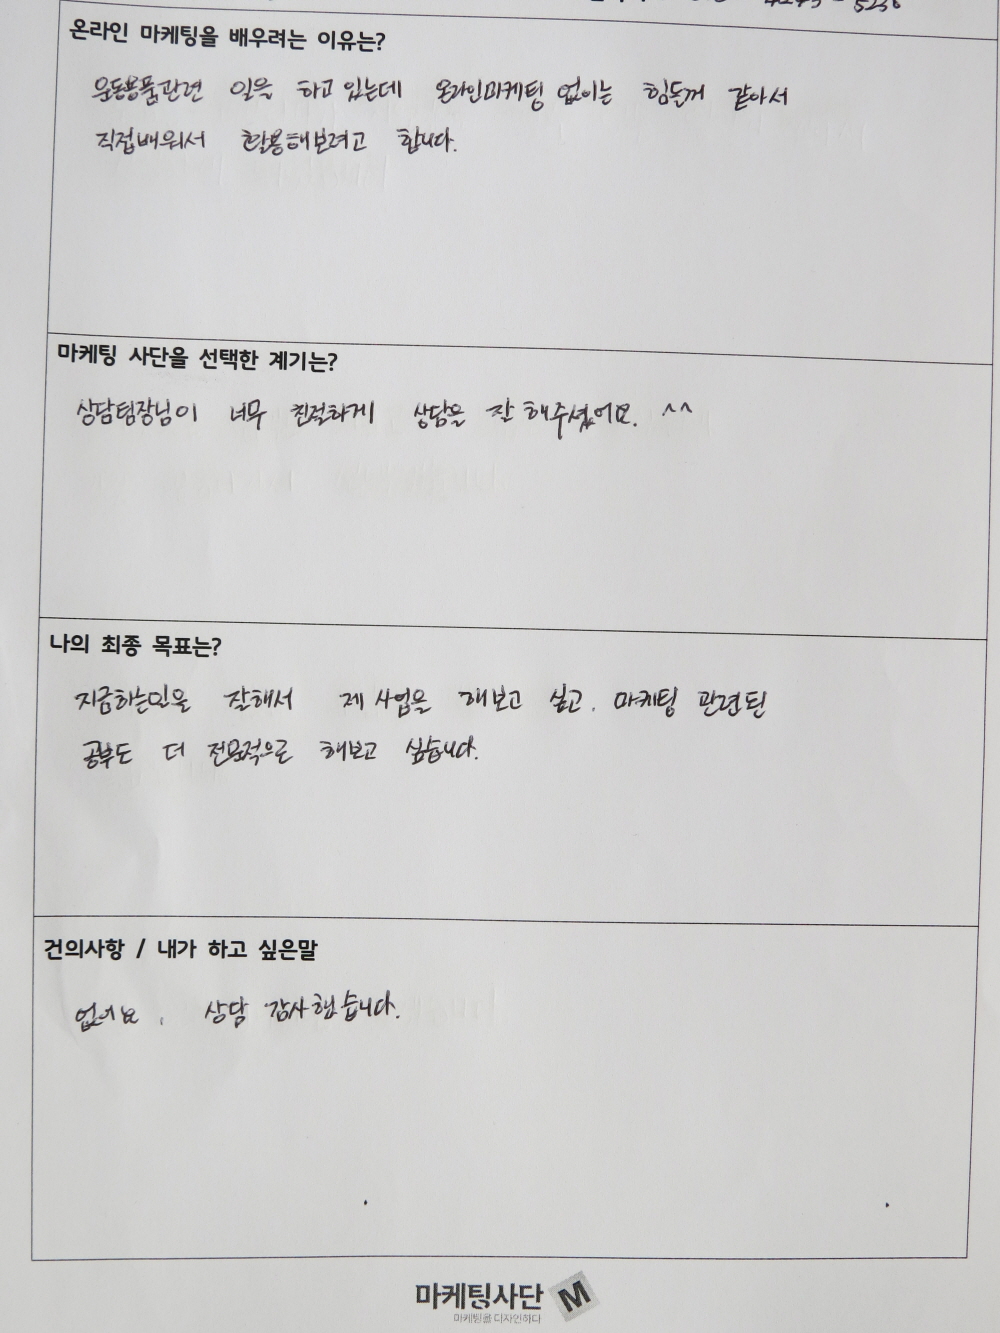 온라인 마케팅을 배우려는 이유는?
운동용품관련 일을 하고 있는데 온라인마케팅 없이는 힘든거 같아서
직접배워서 활용해보려고 합니다.
마케팅 사단을 선택한 계기는?
상담팀장님이 너무 친절하게 상담을 잘 해주셨어요. ^^
나의 최종 목표는?
지금하는일을 잘해서 제 사업을 해보고 싶고, 마케팅 관련된
공부도 더 전문적으로 해보고 싶습니다.
건의사항 / 내가 하고 싶은말
없어요, 상담 감사했습니다.
마케팅사단 M
마케팅을 디자인하다